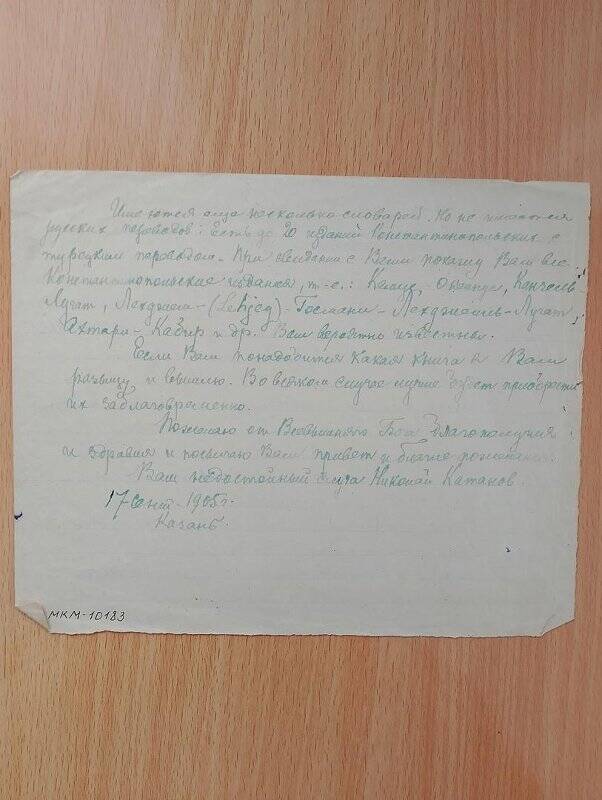 Имеются еще несколько словарей. Но не имеются
русских переводов: Есть до 20 изданий Константинопольских с
турецким переводом. При свидании с Вами покажу Вам все
Константинопольские издания, т-е.: Камус, Канчель-
Лугат, (Lehjeg)- Госмани- Лугат,
Ахтари- Кебир и др. Вам вероятно известны.
Если Вам понадобится какая книга я Вам
разыщу и вышлю. Во всяком случае лучше будет приобрести
их заблаговременно.
Пожелаю от Всевышнего Бога благополучия
и здравия и посылаю Вам привет и благопожелания.
Ваш недостойный слуга Николай Катанов.
17 Сент. 1905 г.
Казань.
МКМ-10183